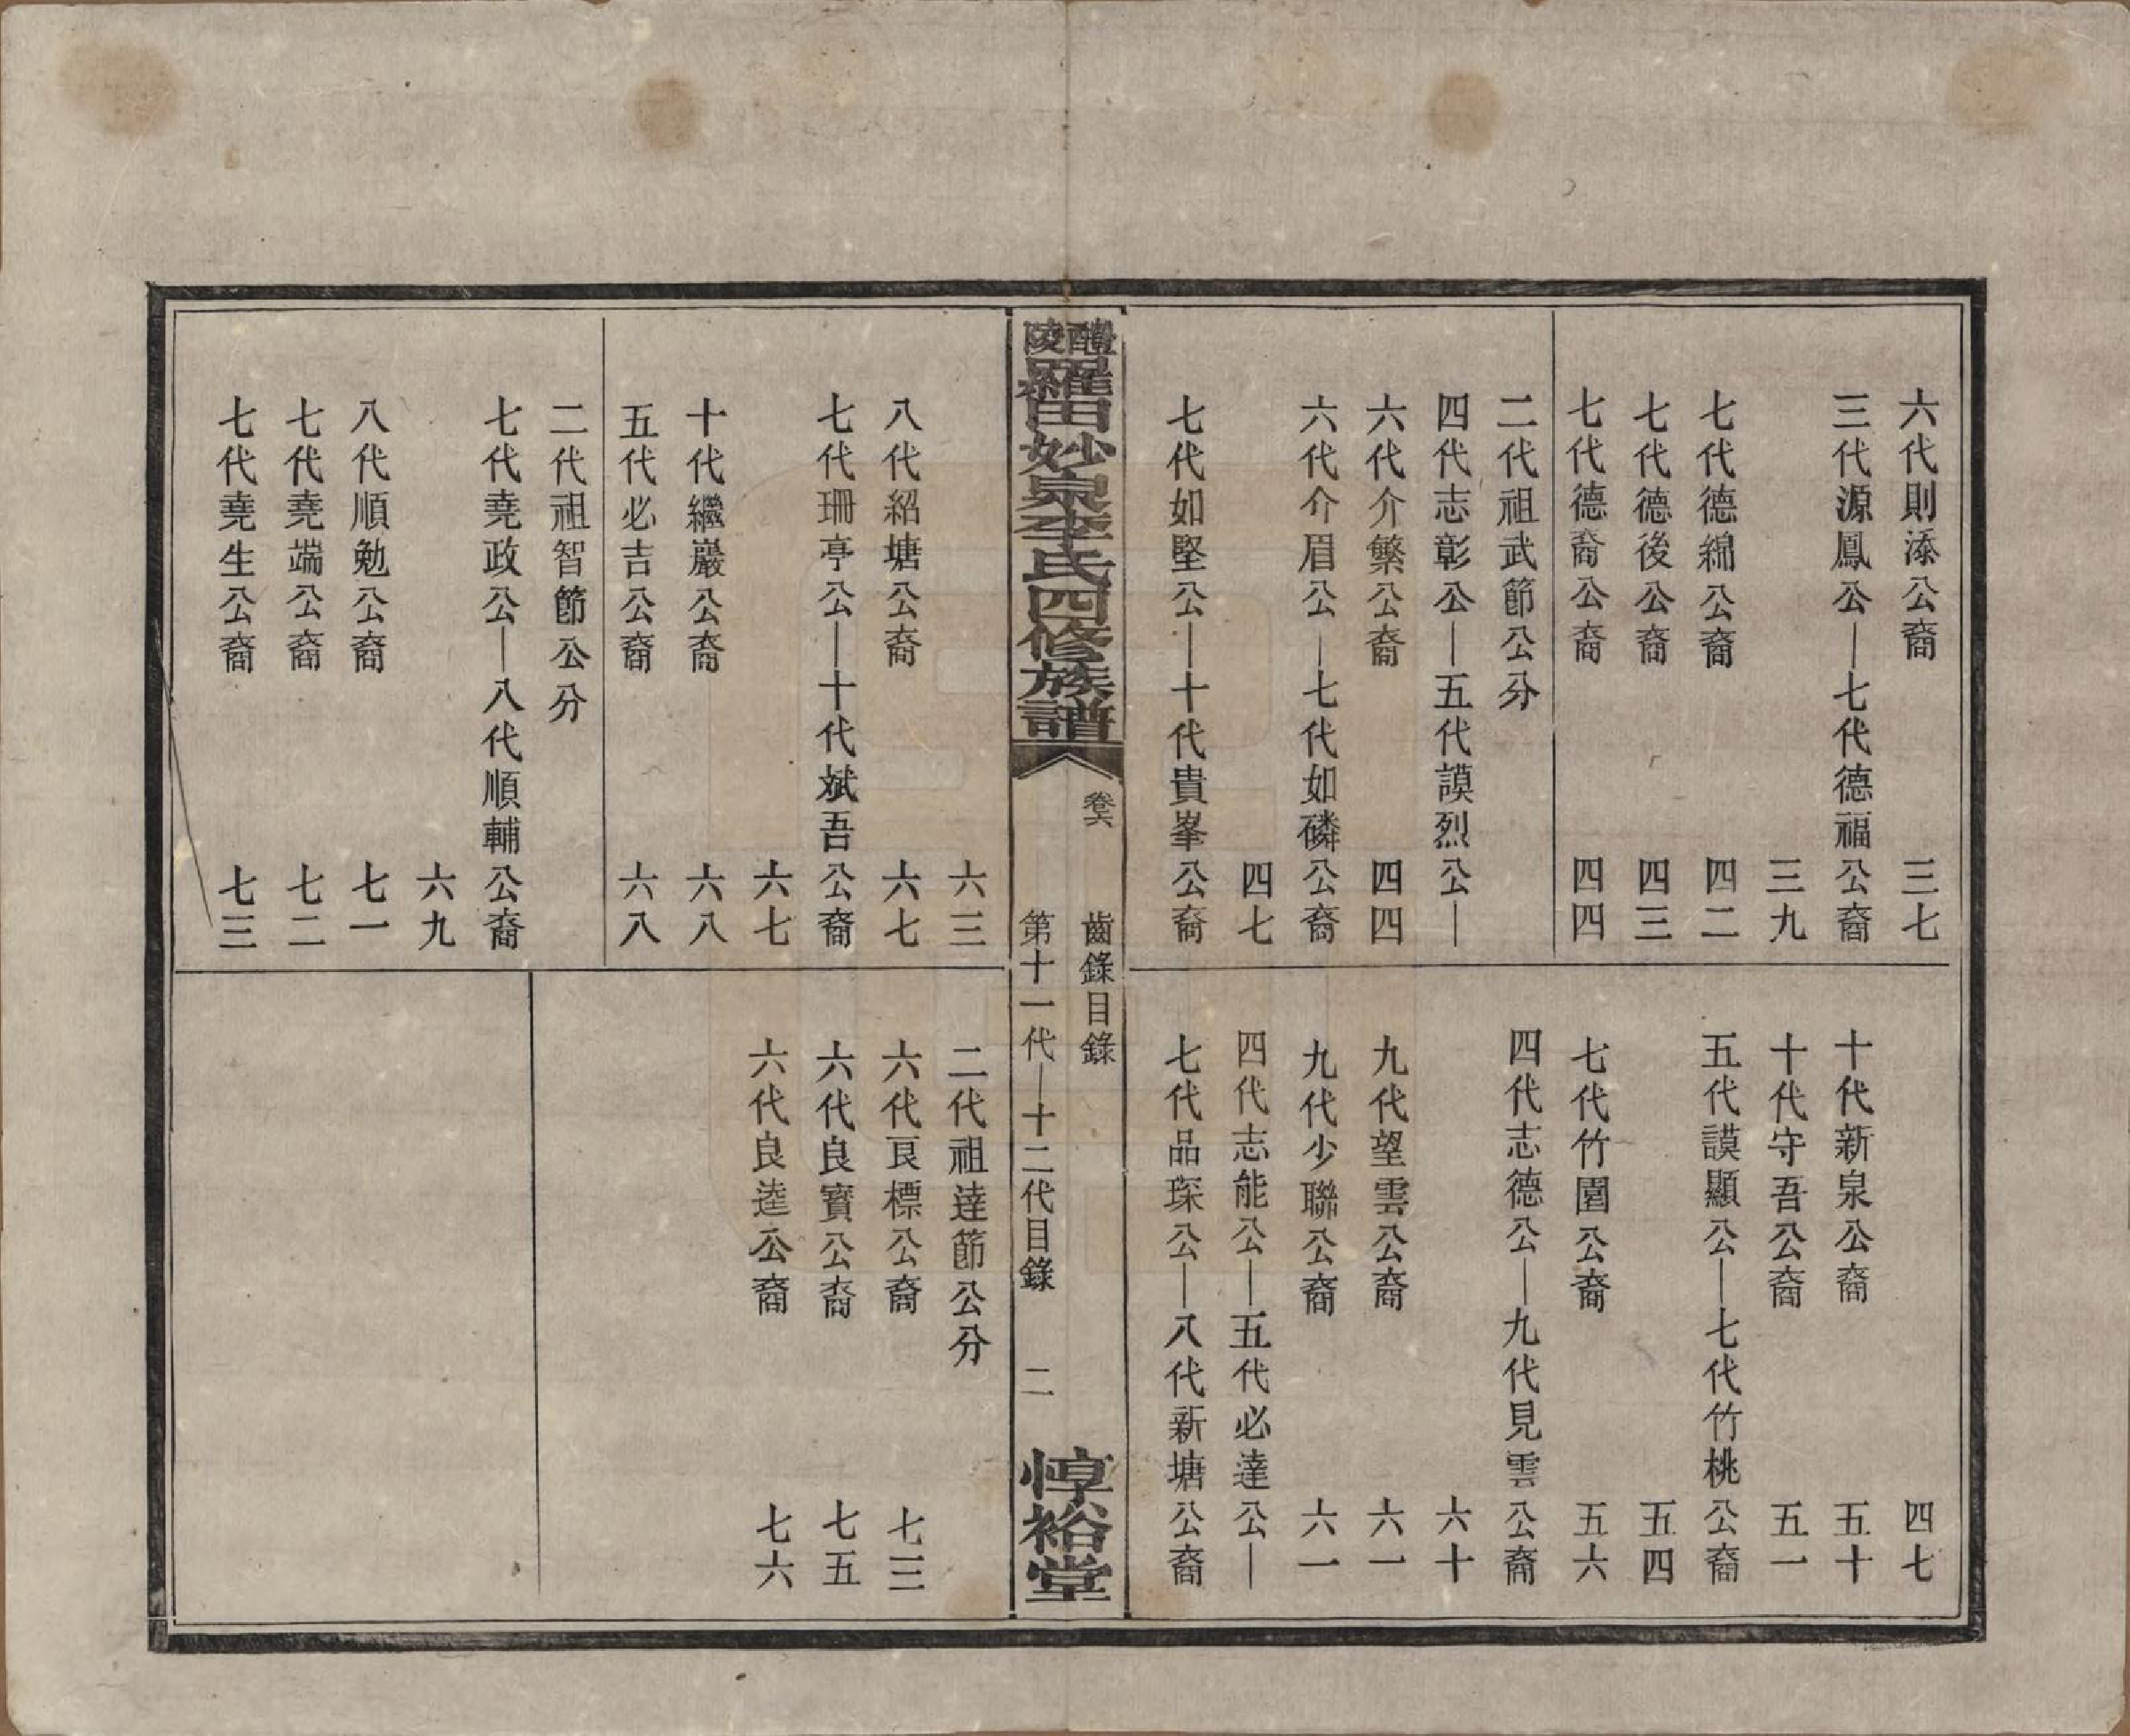 六代則添公裔 三七
三代源鳳公—七代德福公裔
三九
七代德綿公裔 四二
七代德後公裔 四三
七代德裔公裔 四四
二代祖武節公分
四代志彰公—五代謨烈公—
六代介繁公裔 四四
六代介眉公—七代如磷公裔
四七
七代如堅公—十代貴峯公裔
四七
十代新泉公裔 五十
十代守吾公裔 五一
五代謨顯公—七代竹桃公裔
五四
七代竹園公裔 五六
四代志德公—九代見雲公裔
六十
九代望雲公裔 六一
九代少聯公裔 六一
四代志能公—五代必達公—
七代品琛公—八代新塘公裔
醴陵羅田妙泉李氏四修族譜
卷六 齒錄目錄
第十一代—十二代目錄 二
惇裕堂
六三
八代紹塘公裔 六七
七代珊亭公—十代斌吾公裔
六七
十代繼巖公裔 六八
五代必吉公裔 六八
二代祖智節公分
七代堯政公—八代順輔公裔
六九
八代順勉公裔 七一
七代堯端公裔 七二
七代堯生公裔 七三
二代祖達節公分
六代良標公裔 七三
六代良寶公裔 七五
六代良逵公裔 七六